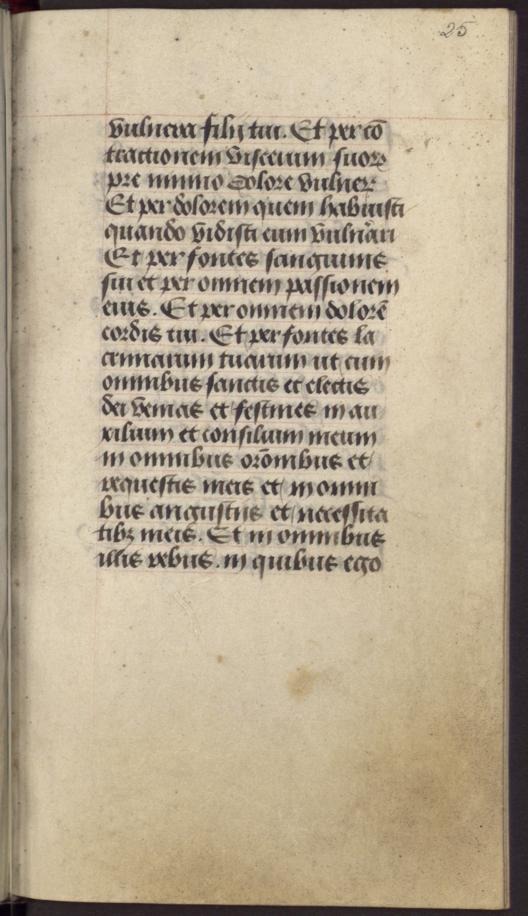 25
vulnera filij tui. Et per cō
tractionem viscerum suorꝝ
pre nimio dolore vulnerꝝ
Et per dolorem quem habuisti
quando vidisti eum vulnerari
Et per fontes sanguinis
sui et per omnem passionem
eius. Et per omnem dolorē
cordis tui. Et per fontes la
crimarum tuarum ut cum
omnibus sanctis et electis
dei venias et festines in au
xilium et consilium meum
in omnibus orōnibus et
requestis meis et in omni
bus angustiis et necessita
tibꝫ meis. Et in omnibus
illis rebus. in quibus ego